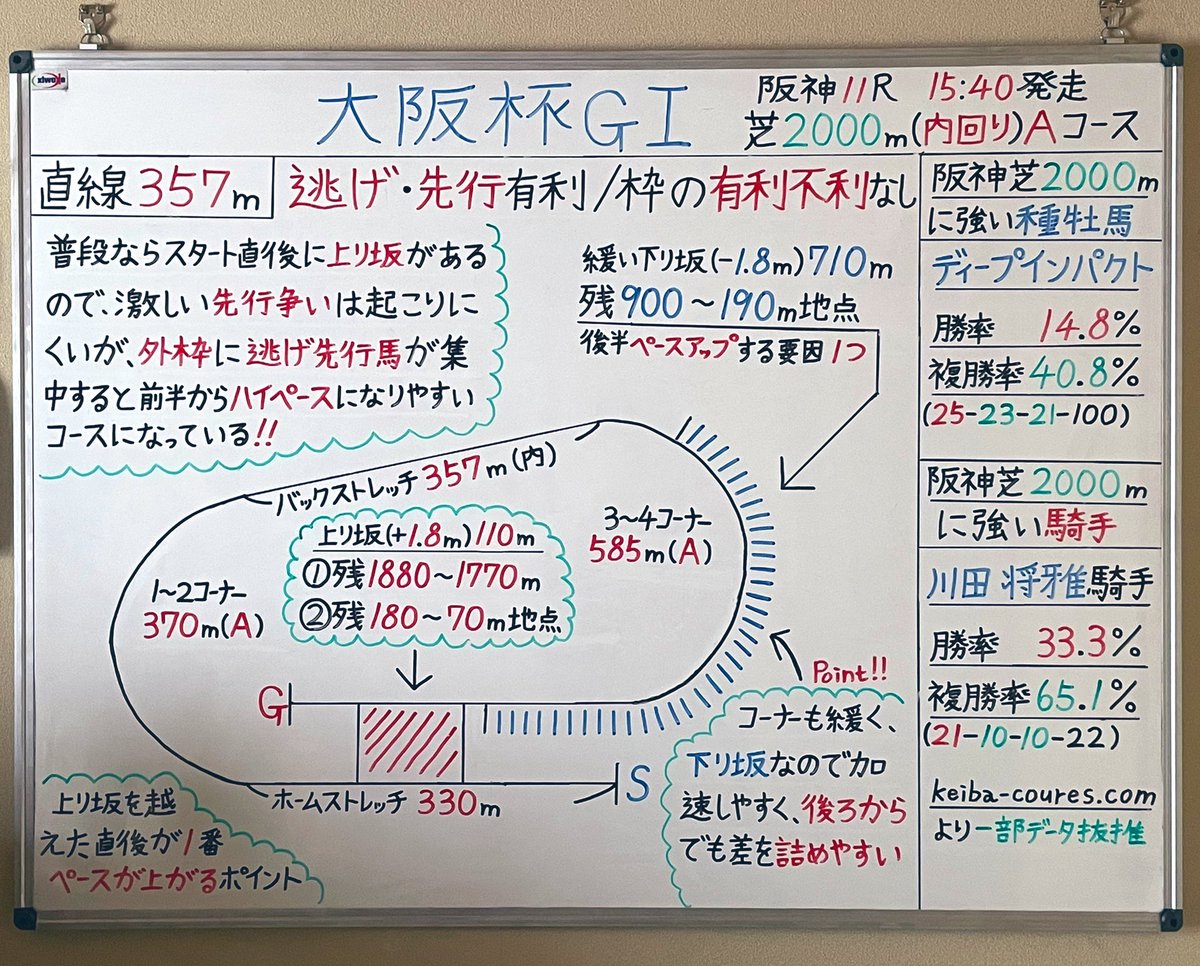 xiwode
大阪杯GI
阪神11R 15:40発走
芝2000m(内回り)Aコース
直線357m
逃げ・先行有利/枠の有利不利なし
普段ならスタート直後に上り坂がある
ので、激しい先行争いは起こりに
くいが、外枠に逃げ先行馬が集
中すると前半からハイペースになりやすい
コースになっている!!
緩い下り坂(-1.8m)710m
残900〜190m地点
後半ペースアップする要因1つ
バックストレッチ357m(内)
上り坂(+1.8m)110m
①残1880〜1770m
②残180〜70m地点
3〜4コーナー
585m(A)
1〜2コーナー
370m(A)
G
S
ホームストレッチ330m
上り坂を越
えた直後が1番
ペースが上がるポイント
Point!!
コーナーも緩く、
下り坂なので加
速しやすく、後ろから
でも差を詰めやすい
阪神芝2000m
に強い種牡馬
ディープインパクト
勝率 14.8%
複勝率40.8%
(25-23-21-100)
阪神芝2000m
に強い騎手
川田将雅騎手
勝率 33.3%
複勝率65.1%
(21-10-10-22)
keiba-coures.com
より一部データ抜推